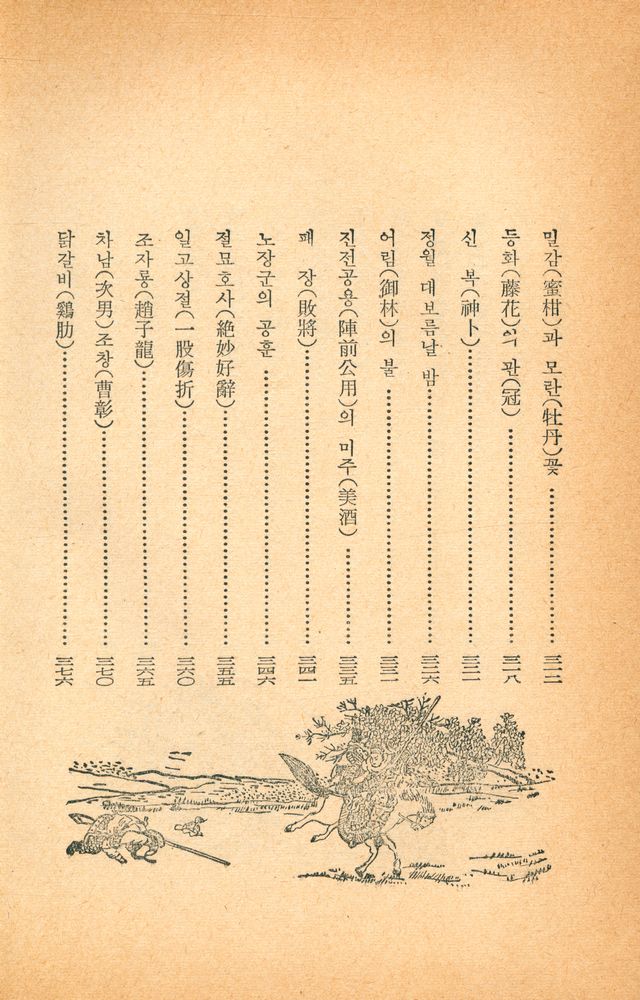 밀감(蜜柑)과 모란(牡丹)꽃 ……… 三一二
등화(藤花)의 관(冠) ……… 三一八
신 복(神卜) ……… 三二一
정월 대보름날 밤 ……… 三二六
어림(御林)의 불 ……… 三三一
진전공용(陣前公用)의 미주(美酒) ……… 三三五
패 장(敗將) ……… 三四一
노장군의 공훈 ……… 三四六
절묘호사(絶妙好辭) ……… 三五五
일고상절(一股傷折) ……… 三六〇
조자룡(趙子龍) ……… 三六五
차남(次男)조창(曹彰) ……… 三七〇
닭갈비(鷄肋) ……… 三七六